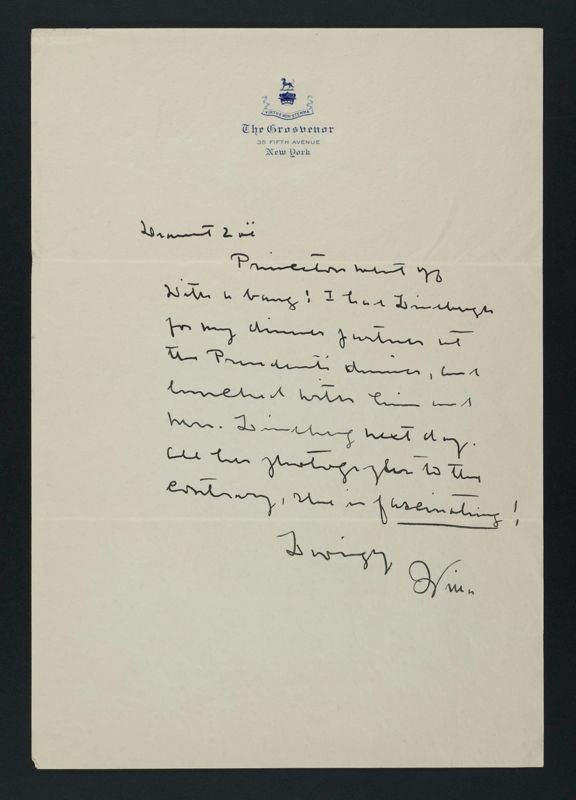 VIRTUS NON STEMMA
The Grosvenor
35 FIFTH AVENUE
New York
Dearest Zoë
Princeton went off
with a bang! I had Lindbergh
for my dinner partner at
the President's dinner, and
lunched with him and
Mrs. Lindberg next day.
All her photographs to the
contrary, she is fascinating!
Lovingly